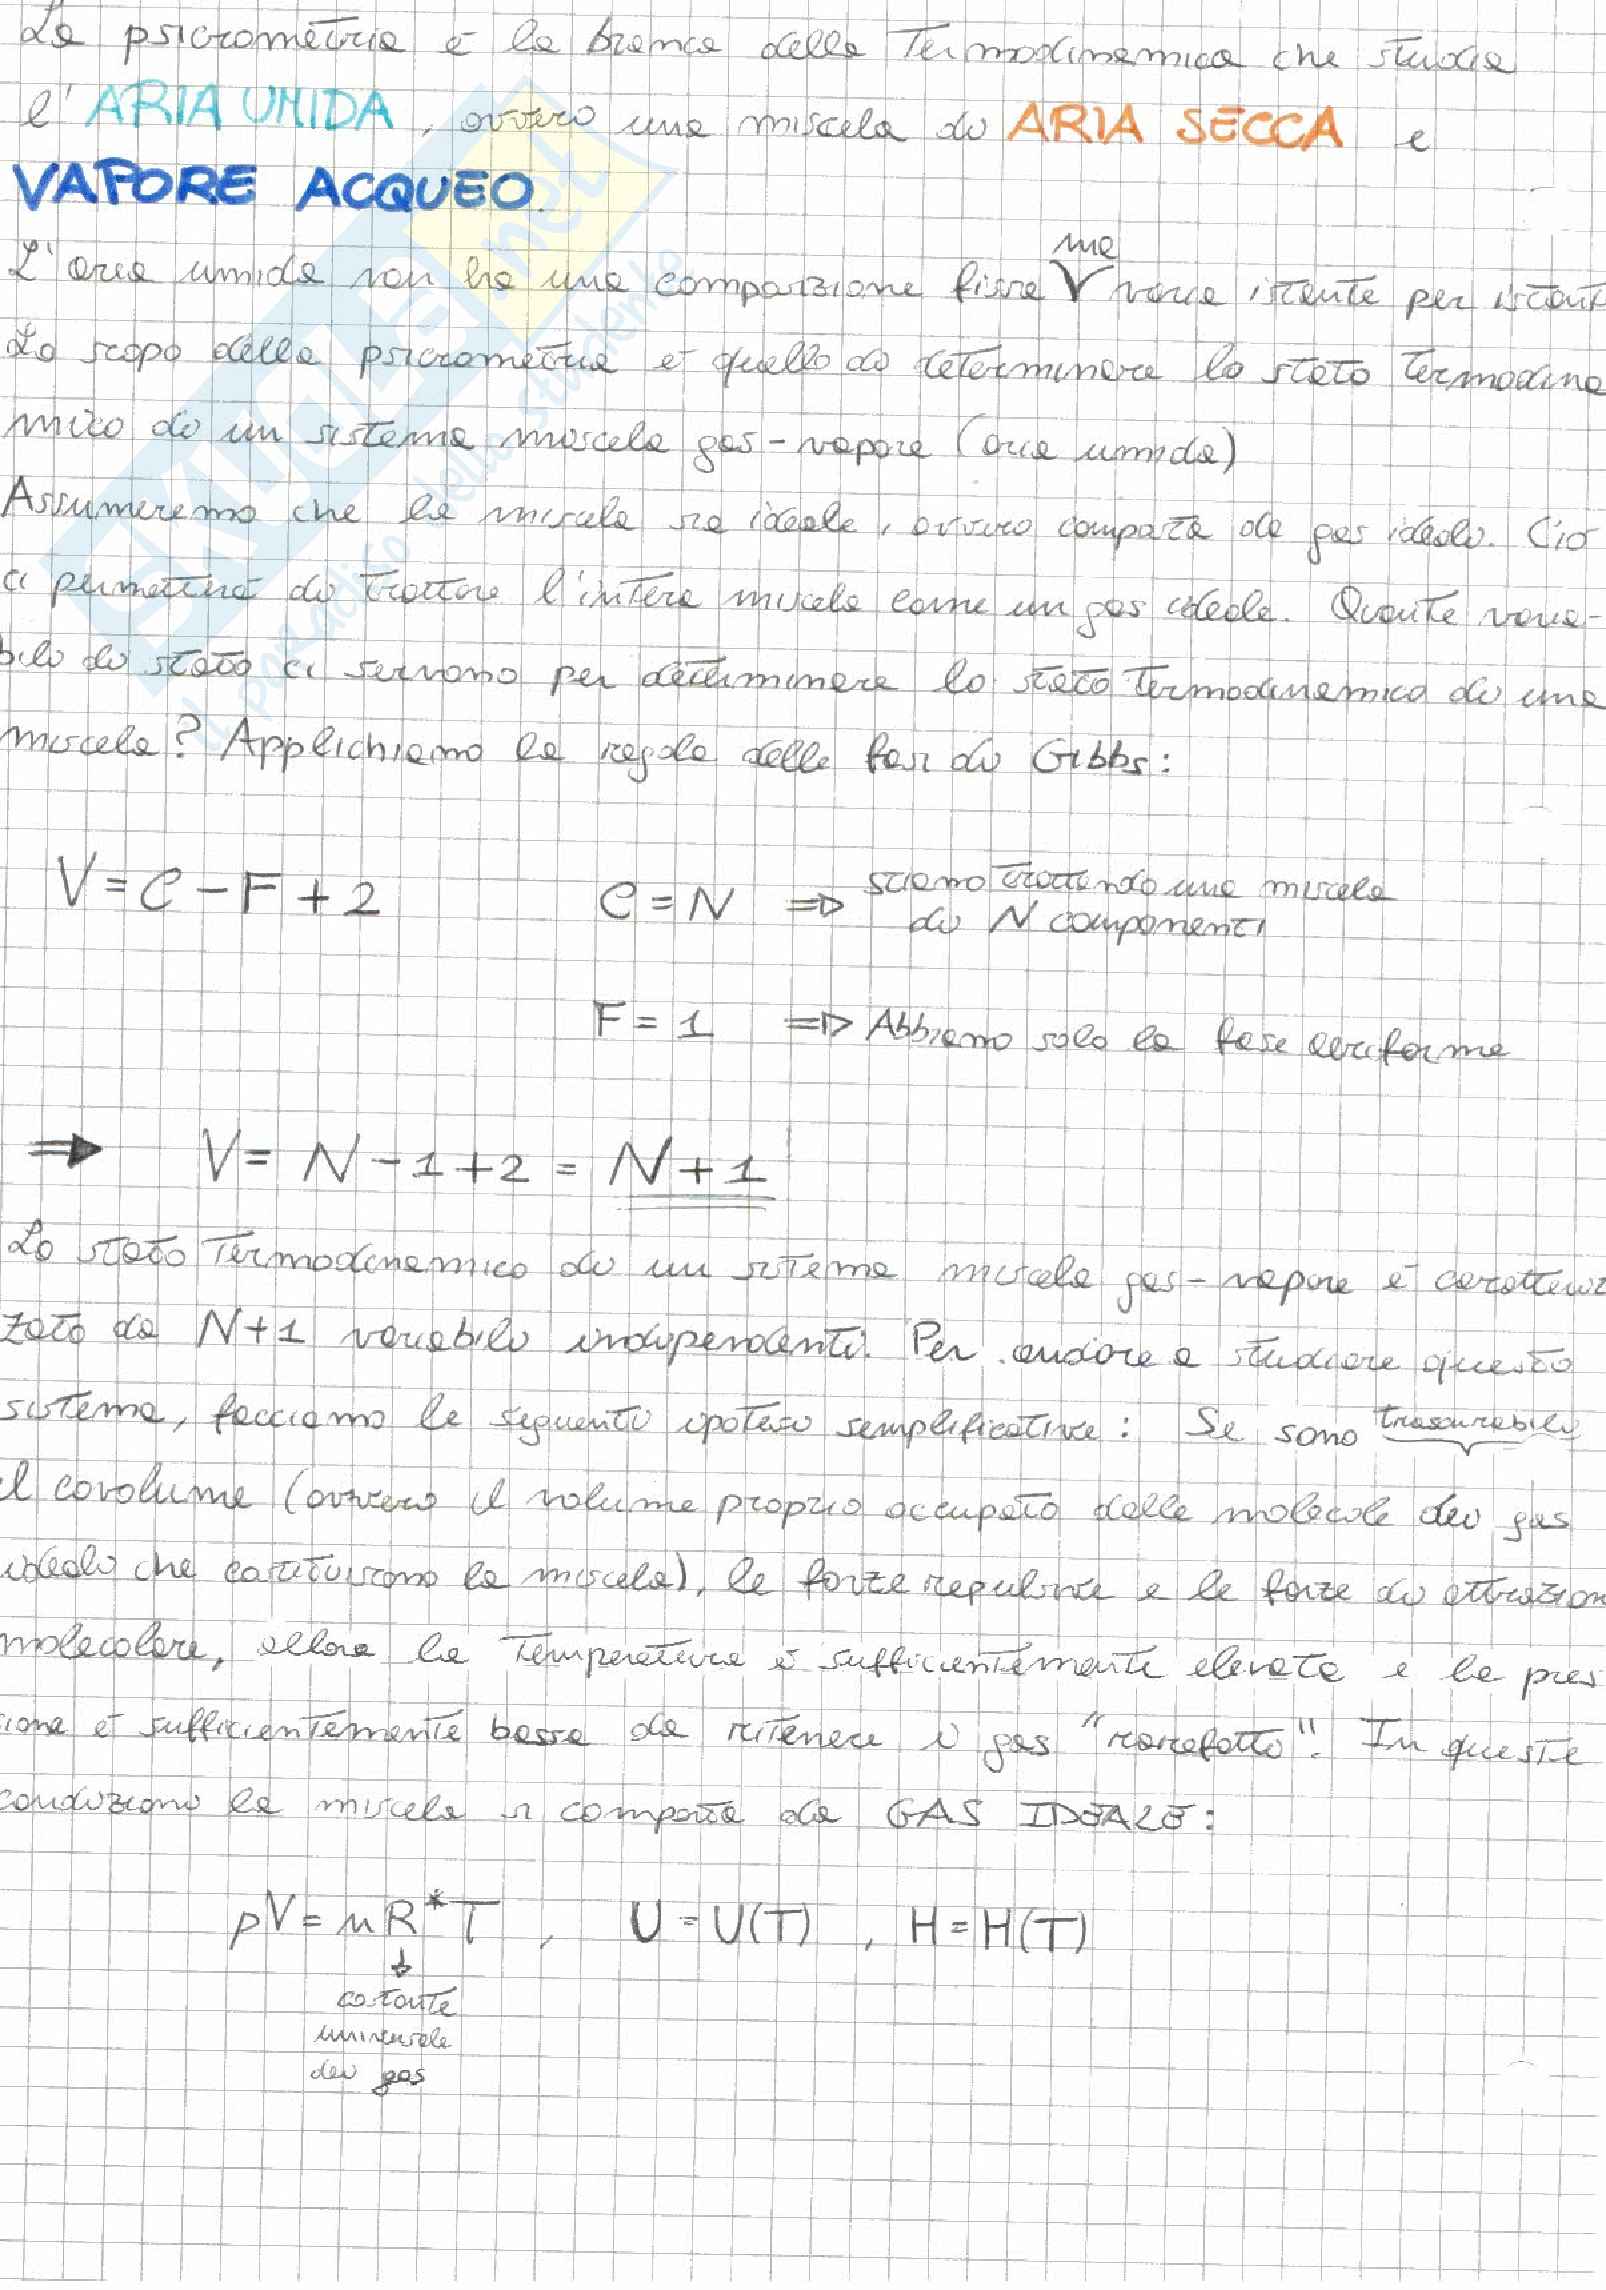 La psicrometria è la branca della Termodinamica che studia
l'ARIA UMIDA, ovvero una miscela di ARIA SECCA e
VAPORE ACQUEO.
ma
L'aria umida non ha una composizione fissa V varia istante per istant
Lo scopo della psicrometria è quello di determinare lo stato termodina
mico di un sistema miscela gas-vapore (aria umida)
Assumeremo che la miscela sia ideale, ovvero composta da gas ideali. Ciò
ci permetterà di trattare l'intera miscela come un gas ideale. Quante varia-
bili di stato ci servono per determinare lo stato termodinamico di una
miscela? Applichiamo la regola delle fasi di Gibbs:
V = C - F + 2
C = N ⇒ stiamo trattando una miscela
di N componenti
F = 1 ⇒ Abbiamo solo la fase aeriforme
⇒ V = N - 1 + 2 = N + 1
Lo stato termodinamico di un sistema miscela gas-vapore è caratteriz
zato da N+1 variabili indipendenti. Per andare a studiare questo
sistema, facciamo le seguenti ipotesi semplificative: Se sono trascurabili
il covolume (ovvero il volume proprio occupato dalle molecole dei gas
ideali che costituiscono la miscela), le forze repulsive e le forze di attrazion
molecolare, allora la temperatura è sufficientemente elevata e la pres
sione è sufficientemente bassa da ritenere i gas "rarefatto". In queste
condizioni la miscela si comporta da GAS IDEALE:
pV = nR*T , U = U(T) , H = H(T)
↓
costante
universale
dei gas
SKUOLA.net
il paradiso dello studente